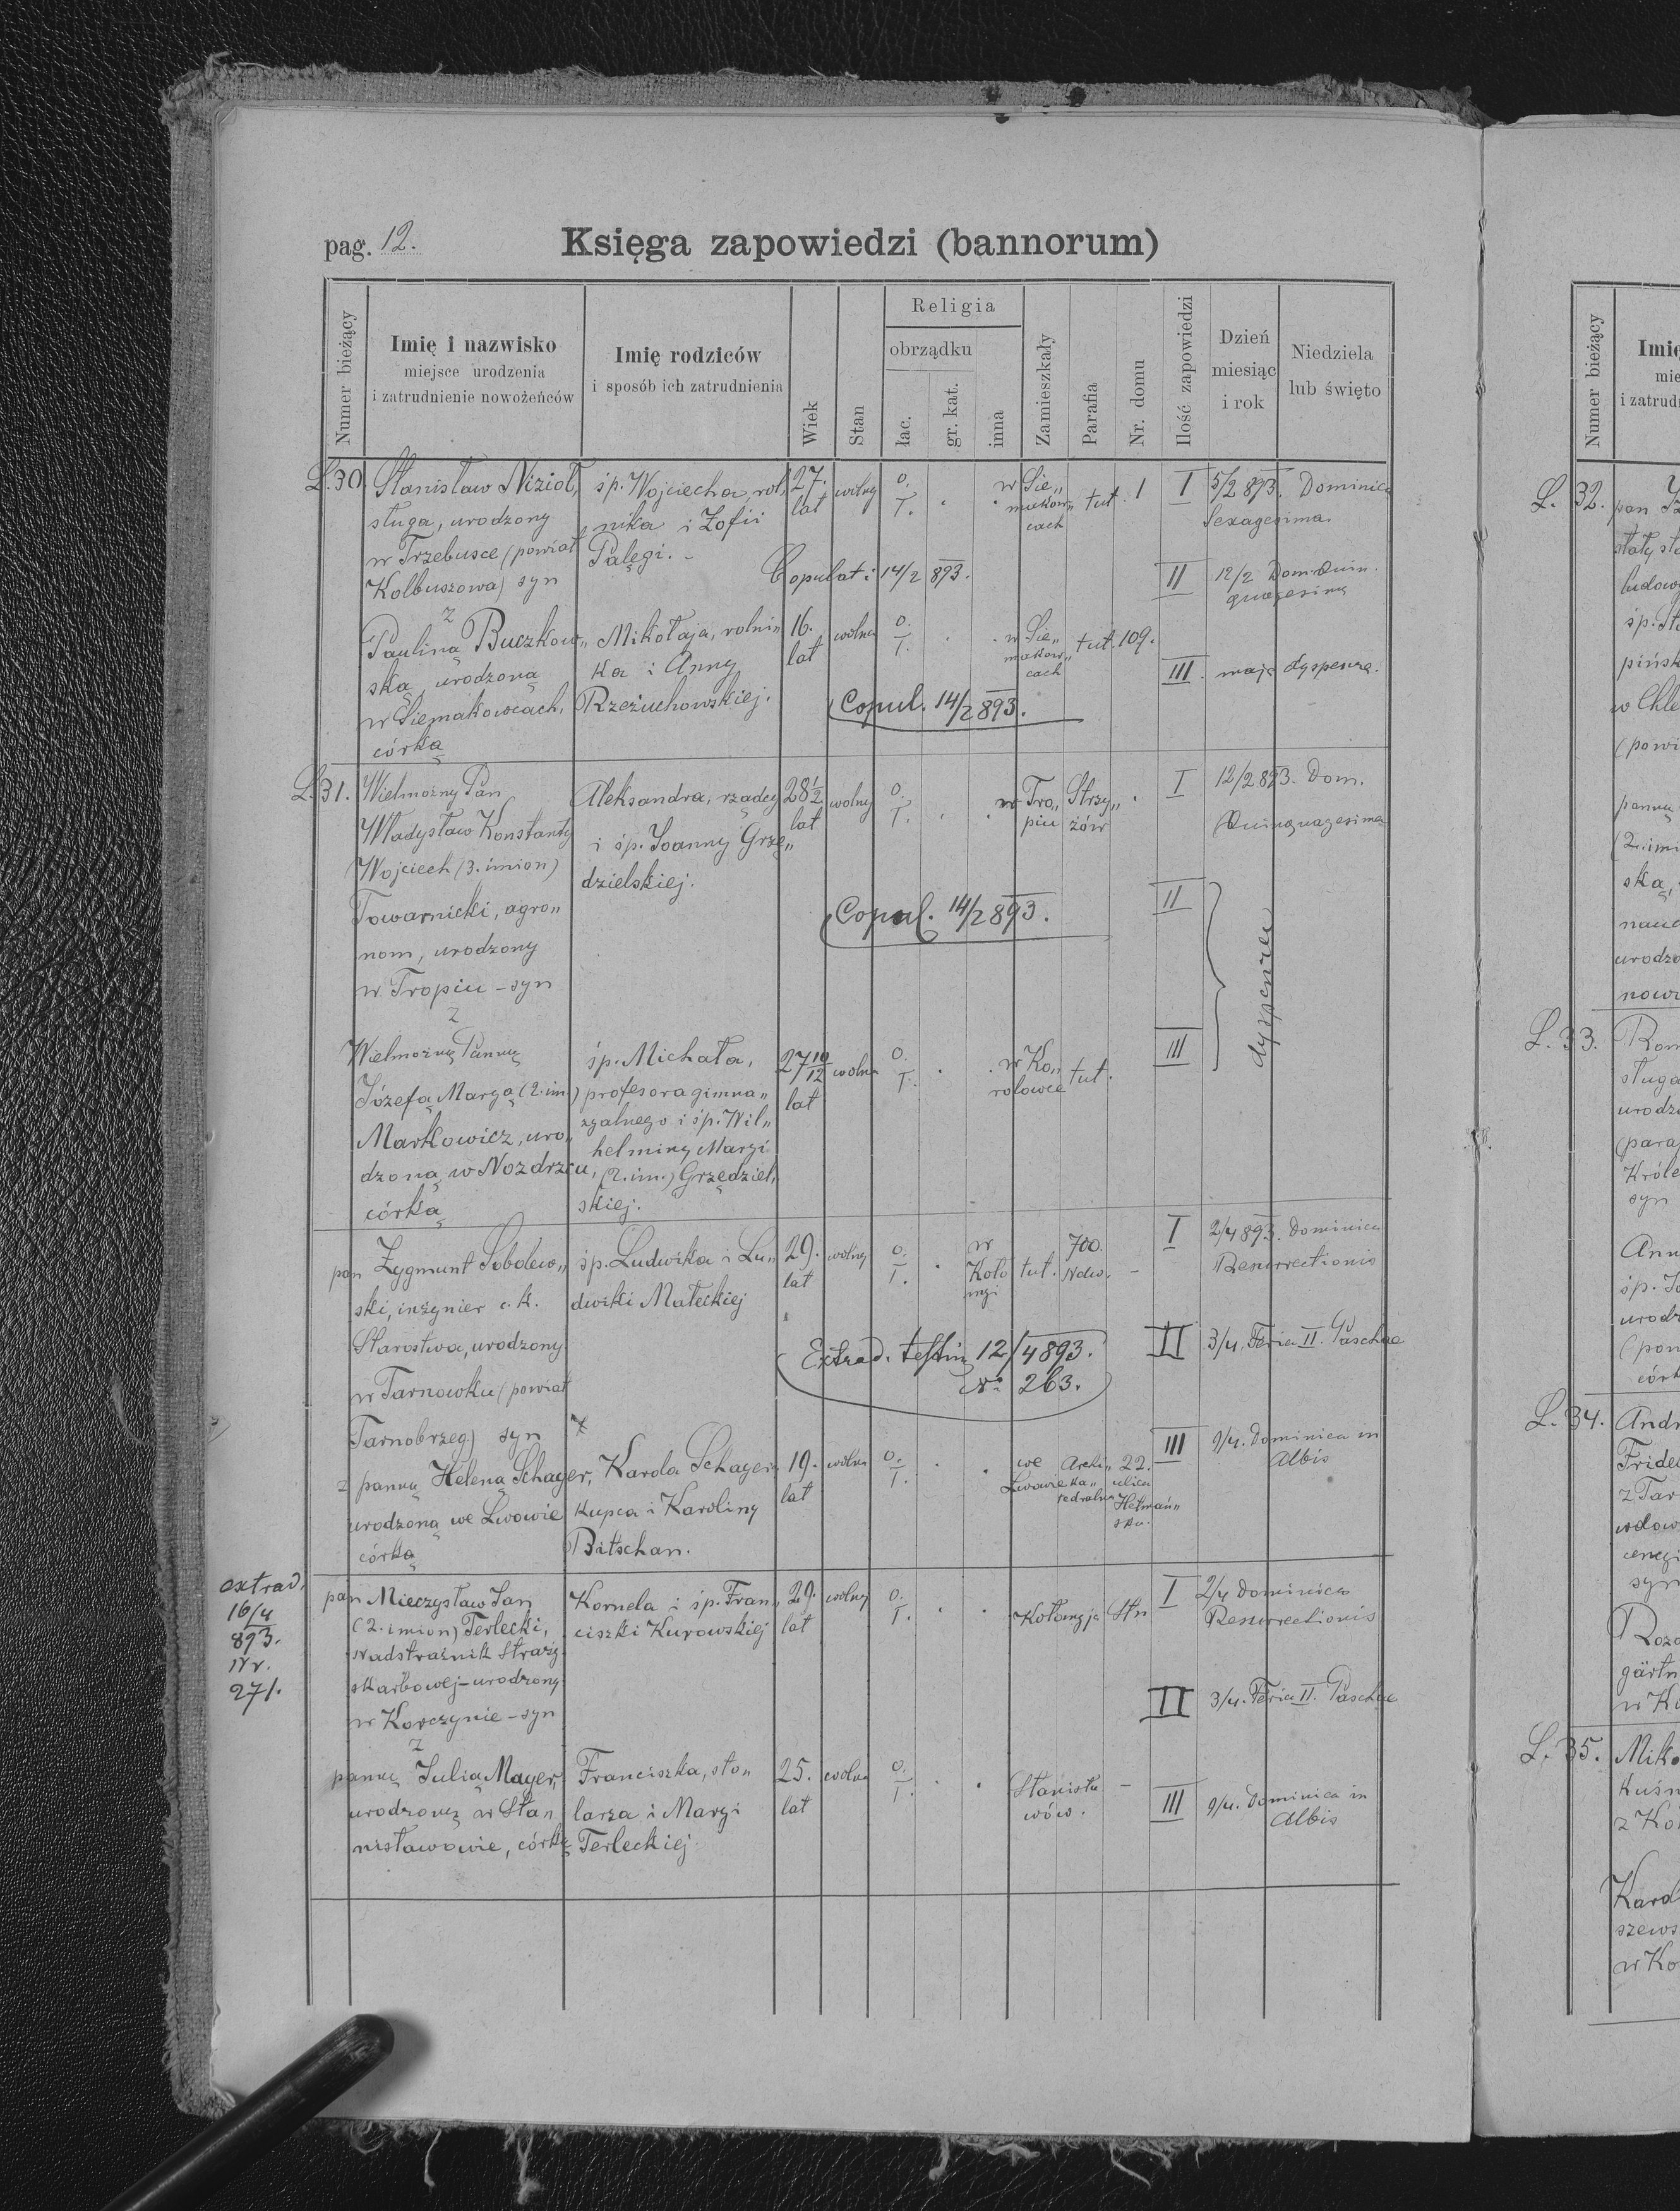 pag. 12.
Księga zapowiedzi (bannorum)
Numer bieżący
Imię i nazwisko
miejsce urodzenia
i zatrudnienie nowożeńców
Imię rodziców
i sposób ich zatrudnienia
Wiek
Stan
Religia
obrządku
łac.
gr. kat.
inna
Zamieszkały
Parafia
Nr. domu
Ilość zapowiedzi
Dzień
miesiąc
i rok
Niedziela
lub święto
L. 30
Stanisław Nizioł,
sługa, urodzony
w Trzebusce (powiat
Kolbuszowa) syn
śp. Wojciecha, rol„
nika i Zofii
Palęgi. -
27.
lat
wolny
o.
ł.
w Sie„
makow„
cach
tut.
1
I
5/2 893. Dominica
Sexagesima.
Copulati 14/2 893.
II
12/2 Dom. Quin
quagesima
z
Pauliną Buczkow„
ską, urodzoną
w Siemakowcach,
córką
Mikołaja, rolni„
ka i Anny
Rzeżuchowskiej.
16.
lat
wolna
o.
ł.
w Sie„
makow„
cach
tut.
109.
III
mają dyspensę.
Copul. 14/2 893.
L. 31.
Wielmożny Pan
Władysław Konstanty
Wojciech (3. imion)
Towarnicki, agro„
nom, urodzony
w Tropiu - syn
Aleksandra, rządcy
i śp. Joanny Grzę„
dzielskiej.
28 1/2
lat
wolny
o.
ł.
w Tro„
piu
Strzy„
żów
I
12/2 893. Dom.
Quinquagesima
Copul. 14/2 893.
II
III
dyspensa
z
Wielmożną Panną
Józefą Maryą (2. im.)
Markowicz, uro„
dzoną w Nozdrzcu,
córką
śp. Michała,
profesora gimna„
zyalnego i śp. Wil„
helminy Maryi
(2. im.) Grzędziel„
skiej.
27 10/12
lat
wolna
o.
ł.
w Ko„
rolowce
tut.
pan Zygmunt Sobolew„
ski, inżynier c. k.
Starostwa, urodzony
w Tarnowku (powiat
Tarnobrzeg) syn
śp. Ludwika i Lu„
dwiki Małeckiej
29.
lat
wolny
o.
ł.
w
Koło
myi
tut.
700.
I
2/4 893. Dominica
Resurrectionis
Extrad. testim 12/4 893.
Nr. 263.
II
3/4. Feria II. Paschae
z panną Heleną Schayer,
urodzoną we Lwowie
córką
Karola Schayera
kupca i Karoliny
Bitschan.
19.
lat
wolna
o.
ł.
we
Lwowie
Archi„
ka„
tedralna
22.
ulica
Hetmań„
ska.
III
9/4. Dominica in
Albis
extrad.
16/4
893.
Nr.
271.
pan Mieczysław Jan
(2. imion) Terlecki,
nadstrażnik straży
skarbowej - urodzony
w Korczynie - syn
Kornela i śp. Fran„
ciszki Kurowskiej
29.
lat
wolny
o.
ł.
Kołomyja
I
2/4 Dominica
Resurrectionis
II
3/4. Feria II. Paschae
z
panną Julią Mayer,
urodzoną w Sta„
nisławowie, córką
Franciszka, sto„
larza i Maryi
Terleckiej
25.
lat
wolna
o.
ł.
Stanisła
wów.
III
9/4. Dominica in
Albis
Numer bieżący
L. 32.
L. 33.
L. 34.
L. 35.